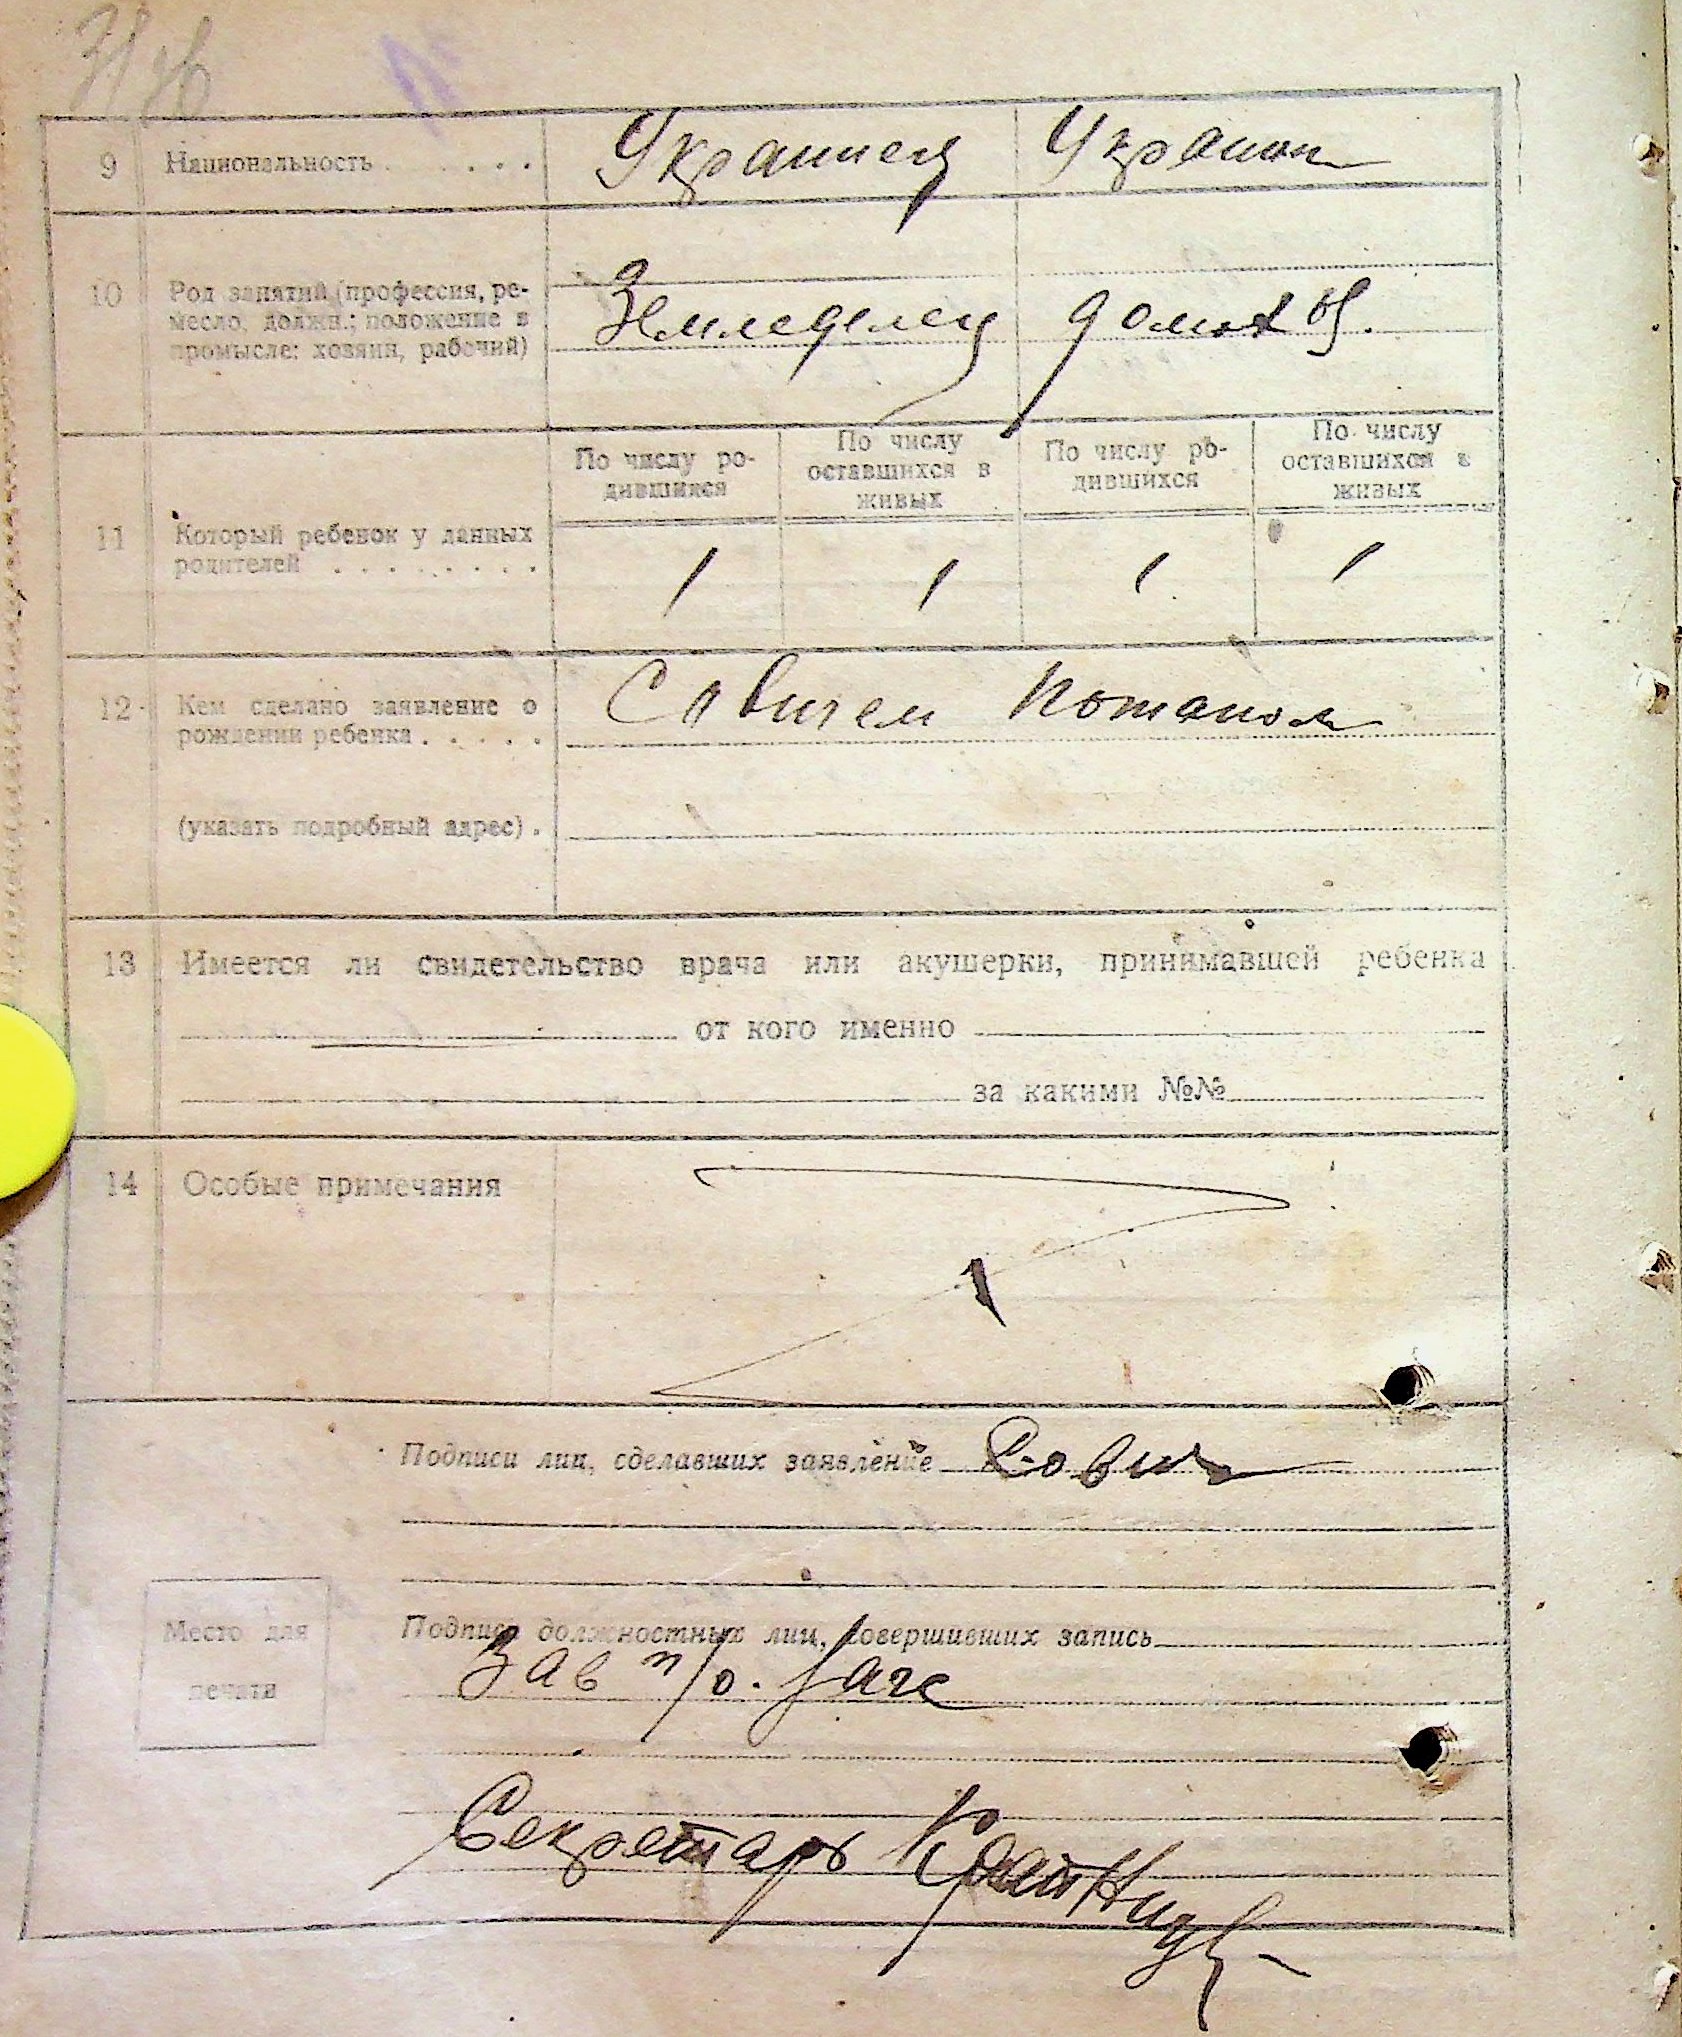 9 Национальность . . . . . . Украинец Украинк
10 Род занятий (профессия, ре-
месло, должн.; положение в
промысле: хозяин, рабочий)
Земледелец домхоз.
По числу ро-
дившихся
По числу
оставшихся в
живых
По числу ро-
дившихся
По числу
оставшихся в
живых
11 Который ребенок у данных
родителей . . . . . . . .
1 1 1 1
12 Кем сделано заявление о
рождении ребенка . . . . .
Савичем Потапом
(указать подробный адрес) .
13 Имеется ли свидетельство врача или акушерки, принимавшей ребенка
от кого именно
за какими №№
14 Особые примечания
Подписи лиц, сделавших заявление Савич
Место для
печати
Подписи должностных лиц, совершивших запись
Зав п/о. Загс
Секретарь